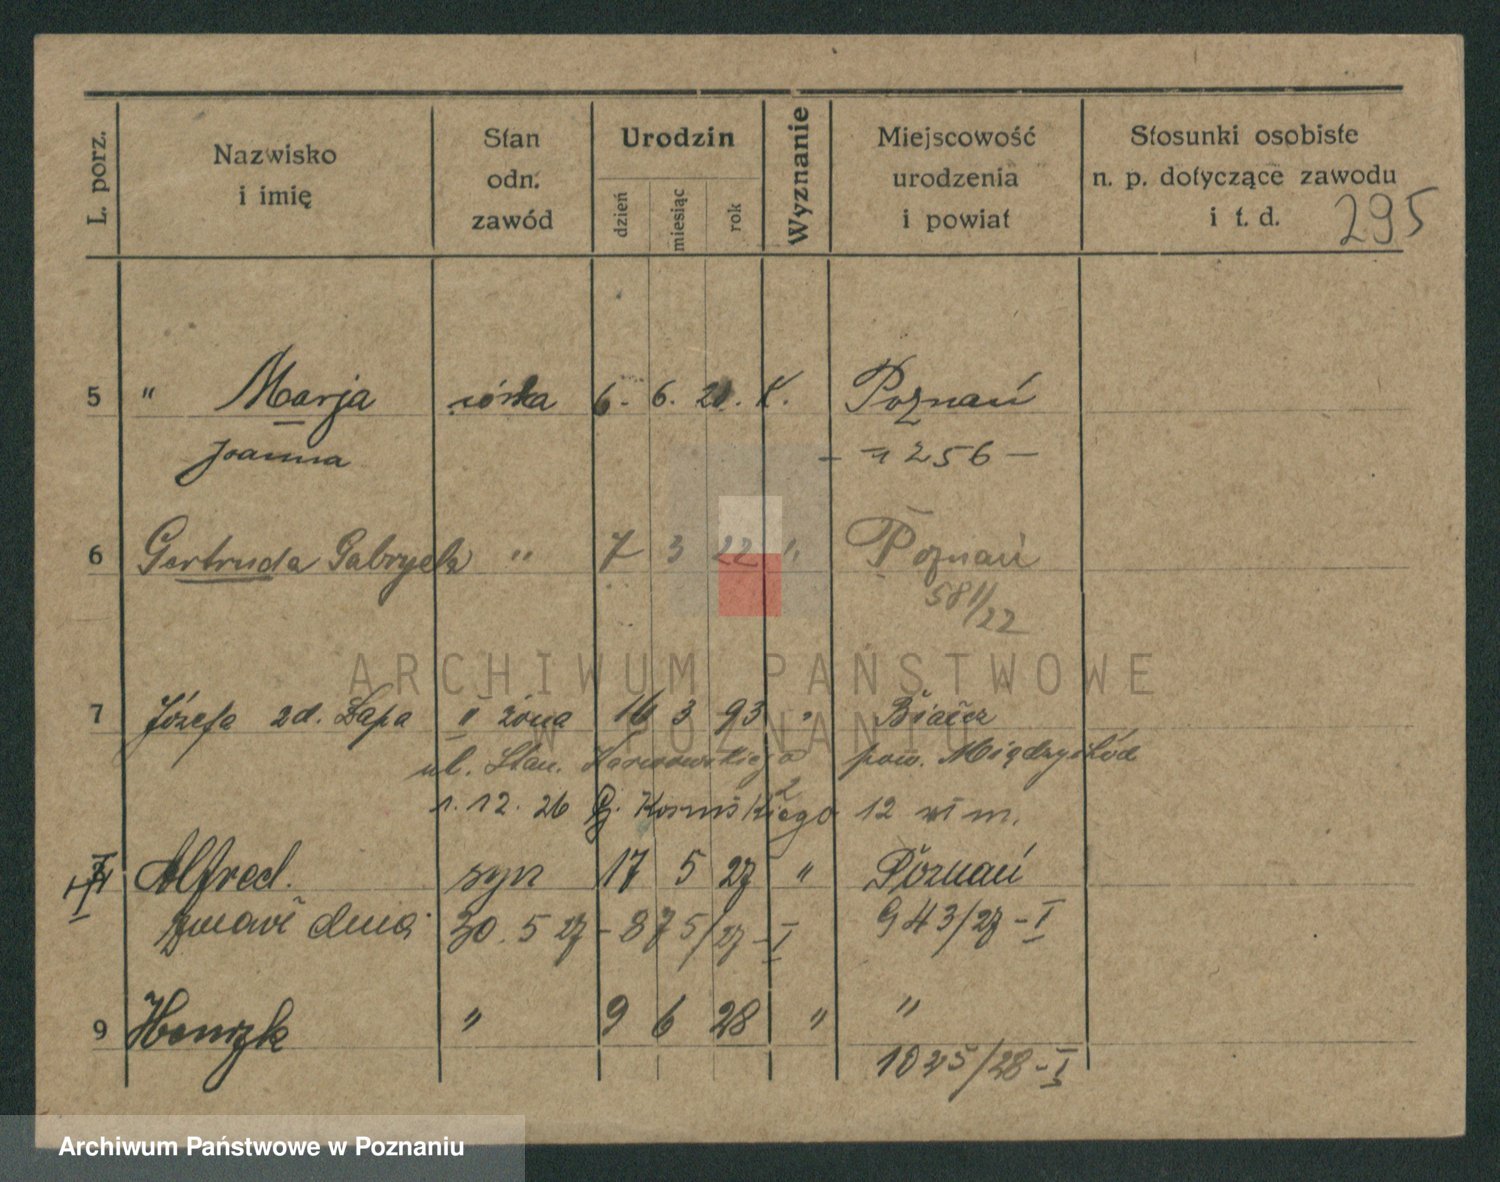 L. porz. Nazwisko i imię Stan odn. zawód Urodzin dzień miesiąc rok Wyznanie Miejscowość urodzenia i powiat Stosunki osobiste n. p. dotyczące zawodu i t. d. 295
5 " Marja córka 6. 6. 21. K. Poznań
Joanna 1256 —
6 Gertruda Gabryela " 7 3 22 " Poznań
581/22
7 Józefa zd. Łapa II żona 16 3 93 " Białcz
ul. Stan. pow. Międzychód
1.12.26 12 m.
Alfred. syn 17 5 27 " Poznań
dnia 30.5 27 - 875/27 - I 943/27 - I
9 Henryk " 9 6 28 " "
1025/28 - I
ARCHIWUM PAŃSTWOWE
W POZNANIU
Archiwum Państwowe w Poznaniu